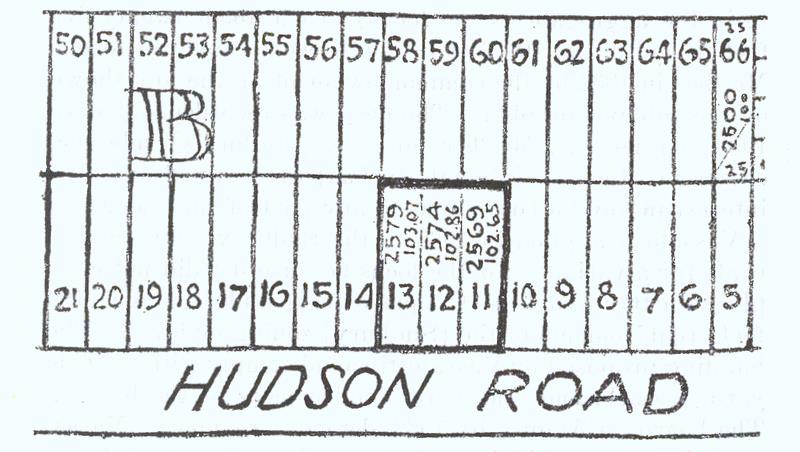 50 51 52 53 54 55 56 57 58 59 60 61 62 63 64 65 66
25
2500
100
25
B
2579
103.07
2574
102.86
2569
102.65
21 20 19 18 17 16 15 14 13 12 11 10 9 8 7 6 5
HUDSON ROAD